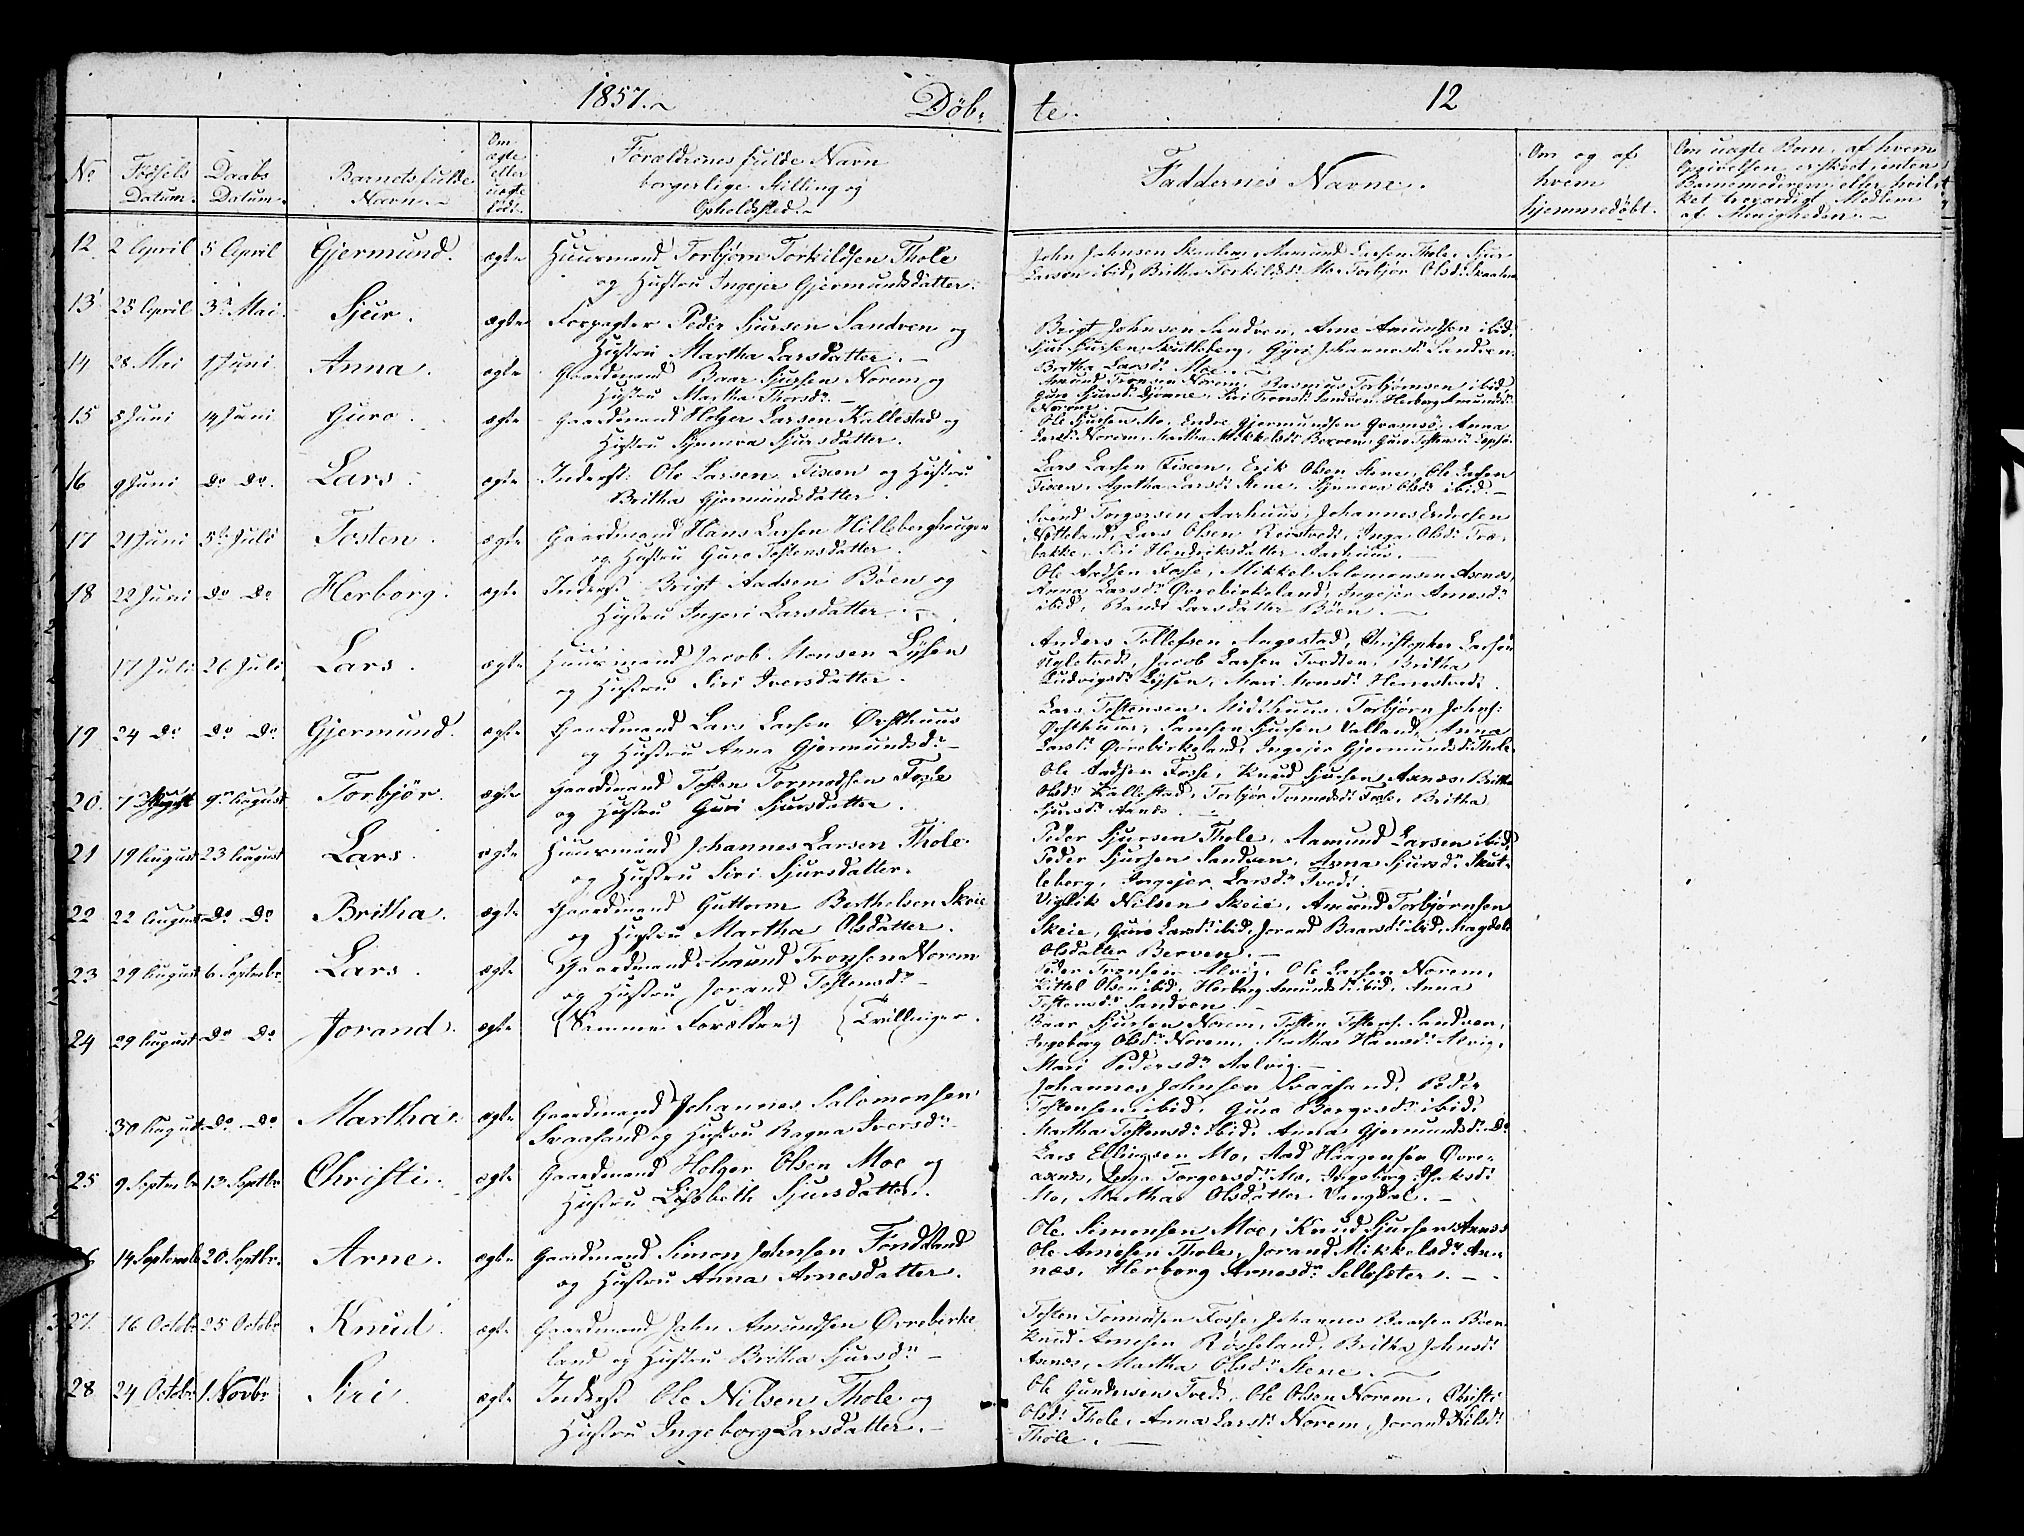 1857.
Døb-
te.
12
No
Fødsels Datum.
Daabs Datum.
Barnets fulde Navn.
Om ægte eller uægte født.
Forældrenes fulde Navn borgerlige Stilling og Opholdssted.
Faddernes Navne.
Om og af hvem hjemmedøbt.
Om uægte Børn, af hvem Opgivelsen er skeet, enten Barnemoderen, eller hvilket troværdigt Medlem af Menigheden.
12 2 April 5 April Gjermund. ægte Huusmand Torbjørn Torkildsen Thole
og Hustru Ingejer Gjermundsdatter.
John Johnsen Skaalen, Aamund Larsen Thole, Sjur
Larsen ibid, Britha Torkildsdr Mo, Torbjør Olsdr Skaalen
13 25 April 3 Mai Sjur. ægte Forpagter Peder Sjursen Sandven og
Hustru Martha Larsdatter.
Brigt Johnsen Sandven, Arne Amundsen ibid,
Sjur Sjursen Skutleberg, Gyri Johannesdr Sandven,
Britha Larsdr Moe.
14 28 Mai 1 Juni Anna. ægte Gaardmand Baar Sjursen Norem og
Hustru Martha Thorsdr
Amund Tronsen Norem, Rasmus Torbjørnsen ibid,
Siri Tronsdr Sandven, Herborg Amundsdr
Norem.
15 5 Juni 14 Juni Guro. ægte Gaardmand Holger Larsen Kallestad og
Hustru Synneva Sjursdatter.
Ole Sjursen Mo, Endre Gjermundsen Gramsø, Anna
Larsdr Norem, Martha Mikkelsdr Berven, Guro Tostensdr
16 9 Juni do do Lars. ægte Inderst Ole Larsen Tixen og Hustru
Britha Gjermundsdatter.
Lars Larsen Tixen, Erik Olsen Stene, Ole Larsen
Tixen, Agatha Larsdr Stene, Synneva Olsdr ibid.
17 21 Juni 5 Juli Tosten. ægte Gaardmand Hans Larsen Hilleberghougen
og Hustru Guro Tostensdatter.
Svend Torgersen Aarhuus, Johannes Endresen
Netteland, Lars Olsen Reistved, Inga Olsdr Træ-
bakke, Siri Hendriksdatter Aarhuus.
18 22 Juni do do Herborg. ægte Inderst Brigt Aadsen Bøen og
Hustru Ingeri Larsdatter.
Ole Aadsen Fosse, Mikkel Salomonsen Axnes,
Anna Larsdr Øvrebirkeland, Ingejer Arnesdr
ibid, Randi Larsdatter Bøen.
17 Juli 26 Juli Lars. ægte Huusmand Jacob Monsen Lysen
og Hustru Siri Iversdatter.
Anders Tollefsen Augestad, Christopher Larsen
Jacob Larsen Tvedten, Britha
Ludvigsdr Lysen, Mari Monsdr
19 24 do do do Gjermund. ægte Gaardmand Lars Larsen Østhuus
og Hustru Anna Gjermundsdr
Lars Tostensen Midthuus, Torbjørn Johns:
Østhuus, Samson Sjursen Valland, Anna
Larsdr Øvrebirkeland, Ingejer Gjermundsdr Thole
20. 7 August 9 August Torbjør. ægte Gaardmand Tosten Tormodsen Fosse
og Hustru Guri Sjursdatter.
Ole Aadsen Fosse, Knud Sjursen Axnes, Britha
Olsdr Kallestad, Torbjør Tormodsdr Fosse, Britha
Sjursdr Axnes.
21 19 August 23 August Lars. ægte Huusmand Johannes Larsen Thole
og Hustru Siri Sjursdatter.
Peder Sjursen Thole, Aamund Larsen ibid,
Peder Sjursen Sandven, Anna Sjursdr Skut-
leberg, Ingejer Larsdr Tvedt.
22 22 August do do Britha. ægte Gaardmand Guttorm Berthelsen Skeie
og Hustru Martha Olsdatter.
Viglik Nilsen Skeie, Amund Torbjørnsen
Skeie, Guro Larsdr ibid, Jorand Baarsdr ibid, Magdeli
Olsdatter Berven.
23 29 August 6 Septembr Lars. ægte Gaardmand Amund Tronsen Norem
og Hustru Jorand Tostensdr
Peder Tronsen Alvig, Ole Larsen Norem,
Kittel Olsen ibid, Herborg Amundsdr ibid, Anna
Tostensdr Sandven.
24 29 August do do Jorand. ægte (Samme Forældre) (Tvillinger.
Baar Sjursen Norem, Tosten Tostens: Sandven,
Ingeborg Olsdr Norem, Martha Hansdr Alvig,
Mari Pedersdr Aalvig.
30 August do do Martha. ægte Gaardmand Johannes Salomonsen
Svaasand og Hustru Ragna Iversdr
Johannes Johnsen Svaasand, Peder
Tostensen ibid, Guro Borgesdr ibid,
Martha Tostensdr ibid, Anna Gjermundsdr do
25 9 Septembr 13 Septbr Christi. ægte Gaardmand Holger Olsen Moe og
Hustru Lisbeth Sjursdatter.
Lars Ellingsen Mo, Aad Haagensen Øvre-
axnes, Torgersdr Mo, Ingeborg Isaksdr
Mo, Martha Olsdatter Vangdal.
26 14 September 20 Septbr. Arne. ægte Gaardmand Simon Johnsen Fonddland
og Hustru Anna Arnesdatter.
Ole Simonsen Moe, Knud Sjursen Axnes
Ole Arnesen Thole, Jorand Mikkelsdr Ax-
næs, Herborg Arnesdr Selleseter.
27. 16 Octobr 25 Octobr Knud. ægte Gaardmand John Amundsen Øvrebirke-
land og Hustru Britha Sjursdr
Tosten Tormodsen Fosse, Johannes Baarsen Bøen
Knud Arnesen Røsseland, Britha Johnsdr
Axnæs, Martha Olsdr Stene.
28 24 Octobr 1. Novbr Siri. ægte Inderst Ole Nilsen Thole og
Hustru Ingeborg Larsdatter.
Ole Gundersen Tvedt, Ole Olsen Norem, Christi
Olsdr Thole, Anna Larsdr Norem, Jorand Nilsdr
Thole.